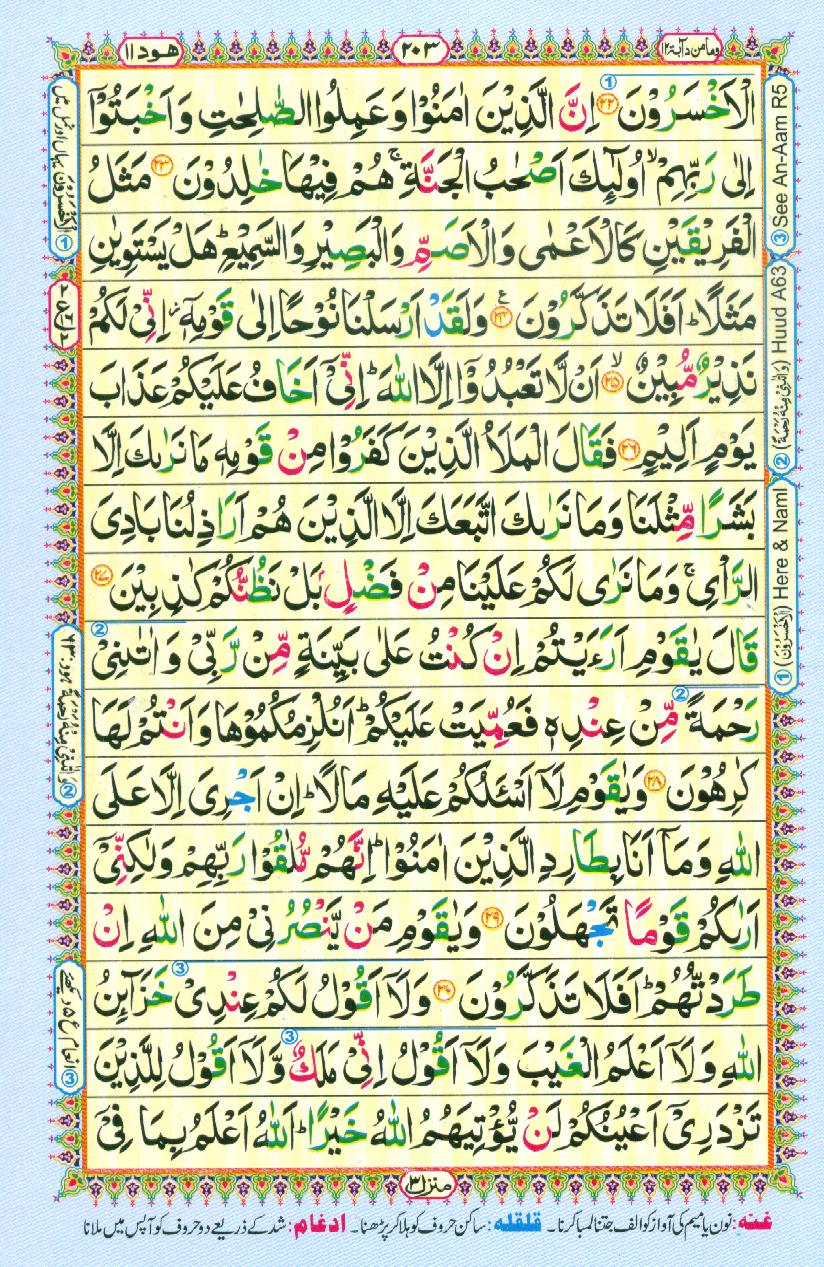 ومامن دآبة ١٢
٢٠٣
هود ١١
الْاَخْسَرُوْنَ ﴿٢٢﴾ اِنَّ الَّذِيْنَ اٰمَنُوْا وَعَمِلُوا الصّٰلِحٰتِ وَاَخْبَتُوْۤا
اِلٰى رَبِّهِمْ ۙ اُولٰٓئِكَ اَصْحٰبُ الْجَنَّةِ ۚ هُمْ فِيْهَا خٰلِدُوْنَ ﴿٢٣﴾ مَثَلُ
الْفَرِيْقَيْنِ كَالْاَعْمٰى وَالْاَصَمِّ وَالْبَصِيْرِ وَالسَّمِيْعِ ؕ هَلْ يَسْتَوِيٰنِ
مَثَلًا ؕ اَفَلَا تَذَكَّرُوْنَ ﴿٢٤﴾ ع وَلَقَدْ اَرْسَلْنَا نُوْحًا اِلٰى قَوْمِهٖۤ ؗ اِنِّيْ لَكُمْ
نَذِيْرٌ مُّبِيْنٌ ﴿٢٥﴾ ۙ اَنْ لَّا تَعْبُدُوْۤا اِلَّا اللّٰهَ ؕ اِنِّيْۤ اَخَافُ عَلَيْكُمْ عَذَابَ
يَوْمٍ اَلِيْمٍ ﴿٢٦﴾ فَقَالَ الْمَلَاُ الَّذِيْنَ كَفَرُوْا مِنْ قَوْمِهٖ مَا نَرٰىكَ اِلَّا
بَشَرًا مِّثْلَنَا وَمَا نَرٰىكَ اتَّبَعَكَ اِلَّا الَّذِيْنَ هُمْ اَرَاذِلُنَا بَادِيَ
الرَّاْيِ ۚ وَمَا نَرٰى لَكُمْ عَلَيْنَا مِنْ فَضْلٍۭ بَلْ نَظُنُّكُمْ كٰذِبِيْنَ ﴿٢٧﴾
قَالَ يٰقَوْمِ اَرَءَيْتُمْ اِنْ كُنْتُ عَلٰى بَيِّنَةٍ مِّنْ رَّبِّيْ وَاٰتٰىنِيْ
رَحْمَةً مِّنْ عِنْدِهٖ فَعُمِّيَتْ عَلَيْكُمْ ؕ اَنُلْزِمُكُمُوْهَا وَاَنْتُمْ لَهَا
كٰرِهُوْنَ ﴿٢٨﴾ وَيٰقَوْمِ لَاۤ اَسْـَٔلُكُمْ عَلَيْهِ مَالًا ؕ اِنْ اَجْرِيَ اِلَّا عَلَى
اللّٰهِ وَمَاۤ اَنَا بِطَارِدِ الَّذِيْنَ اٰمَنُوْا ؕ اِنَّهُمْ مُّلٰقُوْا رَبِّهِمْ وَلٰكِنِّيْۤ
اَرٰىكُمْ قَوْمًا تَجْهَلُوْنَ ﴿٢٩﴾ وَيٰقَوْمِ مَنْ يَّنْصُرُنِيْ مِنَ اللّٰهِ اِنْ
طَرَدْتُّهُمْ ؕ اَفَلَا تَذَكَّرُوْنَ ﴿٣٠﴾ وَلَاۤ اَقُوْلُ لَكُمْ عِنْدِيْ خَزَآئِنُ
اللّٰهِ وَلَاۤ اَعْلَمُ الْغَيْبَ وَلَاۤ اَقُوْلُ اِنِّيْ مَلَكٌ وَّلَاۤ اَقُوْلُ لِلَّذِيْنَ
تَزْدَرِيْۤ اَعْيُنُكُمْ لَنْ يُّؤْتِيَهُمُ اللّٰهُ خَيْرًا ؕ اَللّٰهُ اَعْلَمُ بِمَا فِيْۤ
① (الْاَخْسَرُوْنَ) Here & Naml
② (وَاٰتٰىنِيْ مِنْهُ رَحْمَةً) Huud A63
③ See An-Aam R5
① الْاَخْسَرُوْنَ یہاں اور نمل میں
② وَاٰتٰىنِيْ مِنْهُ رَحْمَةً ہود:۶۳
③ انعام ع ۵ دیکھئے
منزل ٣
غنہ: نون یا میم کی آواز کو الف جتنا لمبا کرنا۔ قلقلہ: ساکن حروف کو ہلا کر پڑھنا۔ ادغام: شد کے ذریعے دو حروف کو آپس میں ملانا